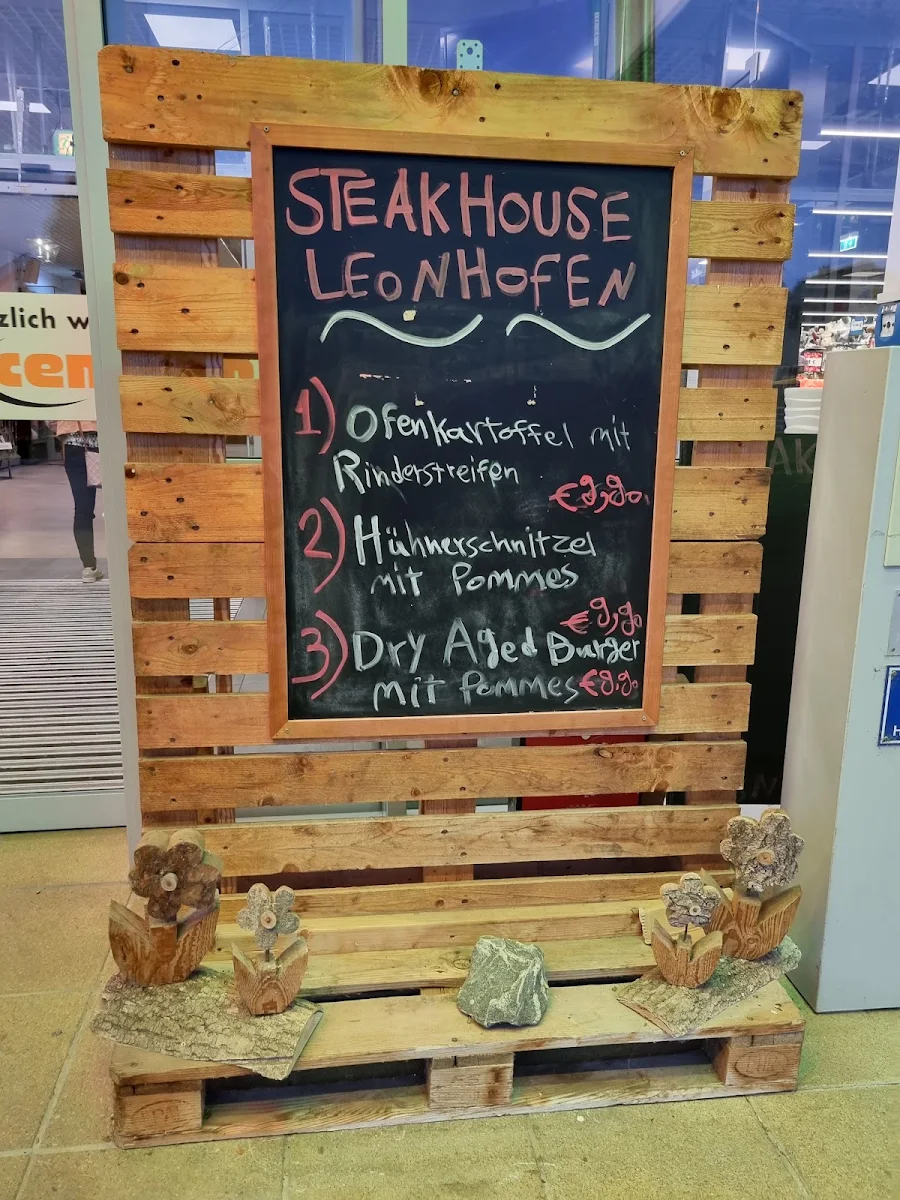 STEAKHOUSE
LEONHOFEN
1) Ofenkartoffel mit
Rinderstreifen
€9,90.
2) Hühnerschnitzel
mit Pommes
€9,90
3) Dry Aged Burger
mit Pommes €9,90
zlich w
cen